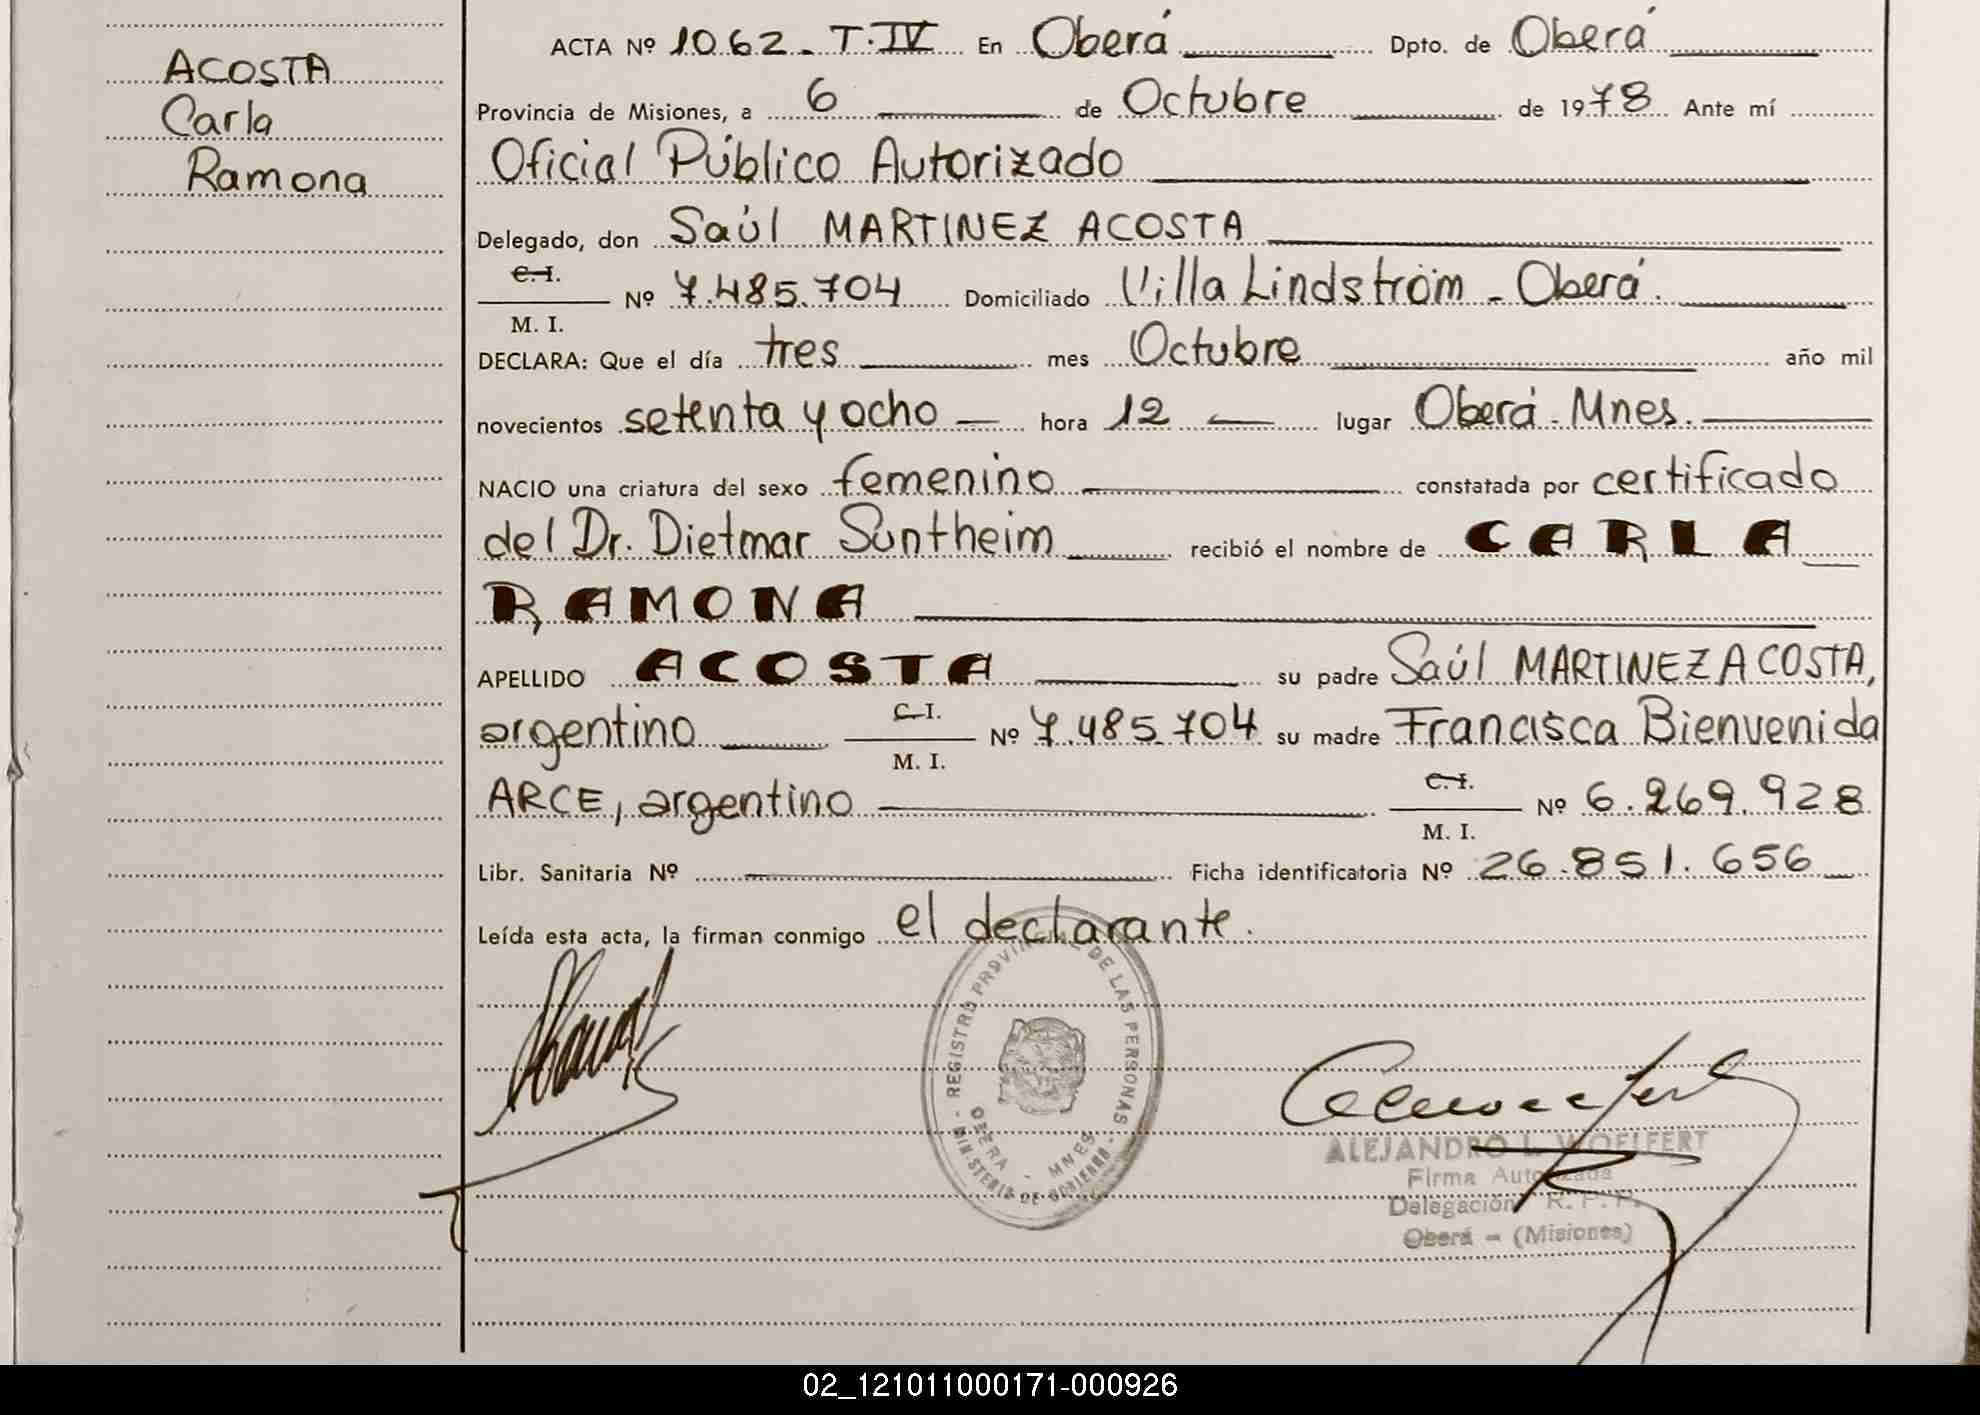 ACOSTA
Carla
Ramona
ACTA Nº 1062 - T.IV En Oberá Dpto. de Oberá
Provincia de Misiones, a 6 de Octubre de 1978 Ante mí
Oficial Público Autorizado
Delegado, don Saúl MARTINEZ ACOSTA
C.I.
Nº 7.485.704 Domiciliado Villa Lindström - Oberá.
M. I.
DECLARA: Que el día tres mes Octubre año mil
novecientos setenta y ocho hora 12 lugar Oberá - Mnes.
NACIO una criatura del sexo femenino constatada por certificado
del Dr. Dietmar Suntheim recibió el nombre de CARLA
RAMONA
APELLIDO ACOSTA su padre Saúl MARTINEZ ACOSTA,
argentino C.I. M. I. Nº 7.485.704 su madre Francisca Bienvenida
ARCE, argentino C.I. M. I. Nº 6.269.928
Libr. Sanitaria Nº Ficha identificatoria Nº 26.851.656
Leída esta acta, la firman conmigo el declarante.
- REGISTRO PROVINCIAL DE LAS PERSONAS -
OBERA - MNES
MINISTERIO DE GOBIERNO
ALEJANDRO L. WOELFERT
Firma Autorizada
Delegación R. P. P.
Oberá - (Misiones)
02_121011000171-000926